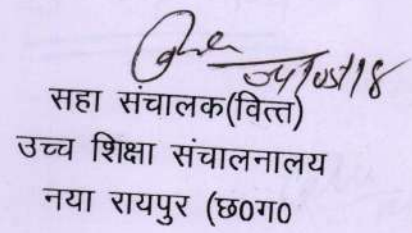 04/05/18
सहा संचालक(वित्त)
उच्च शिक्षा संचालनालय
नया रायपुर (छ०ग०